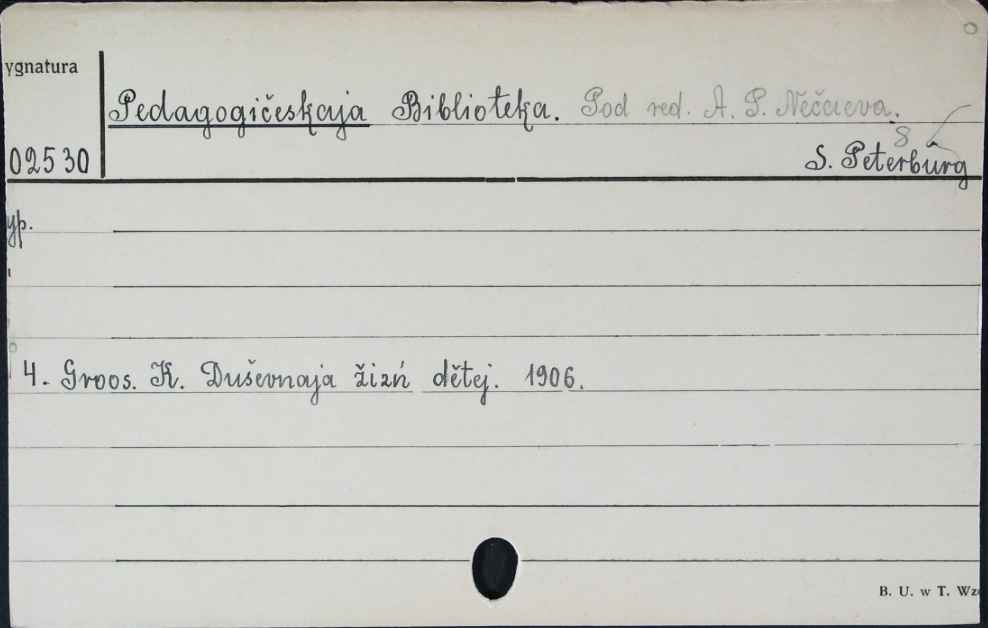 ygnatura
Pedagogičeskaja Biblioteka. Pod red. A. P. Nečaeva.
8
02530
S. Peterburg
yp.
4. Groos. K. Duševnaja žizń dětej. 1906.
B. U. w T. Wz